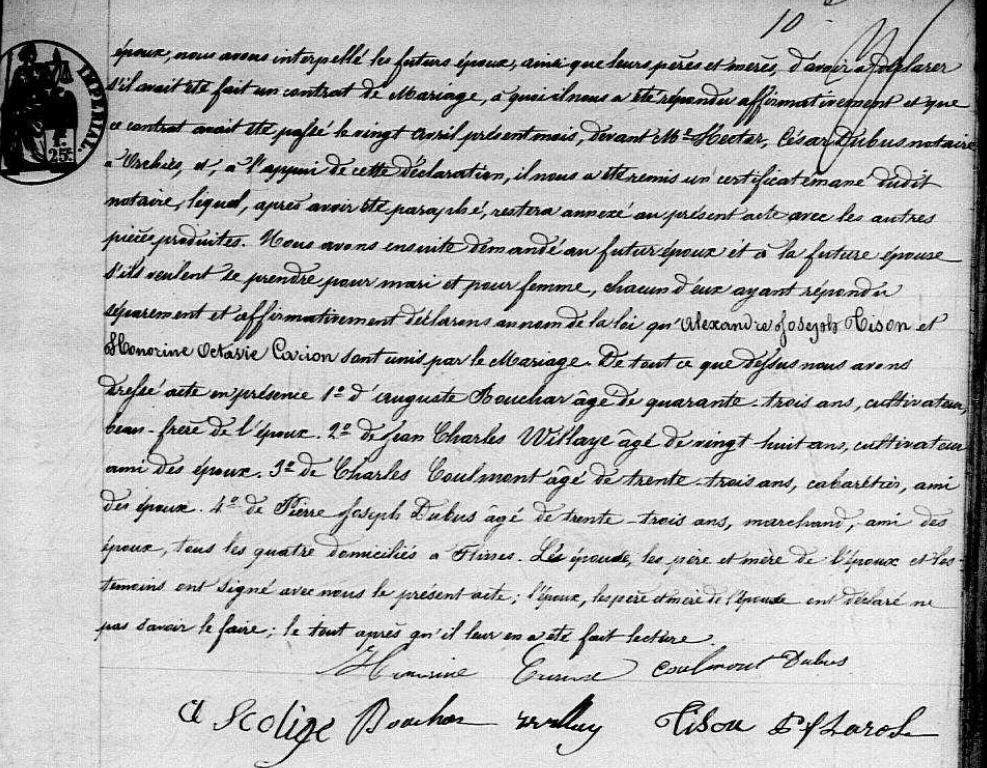 10
IMPÉRIAL.
25c
époux, nous avons interpellé les futurs époux, ainsi que leurs pères et mères, d'avoir a déclarer
s'il avait été fait un contrat de Mariage, à quoi il nous a été répondu affirmativement et que
ce contrat avait été passé le vingt avril présent mois, devant Me Hector, César Dubus notaire
a Orchies, et, à l'appui de cette déclaration, il nous a été remis un certificat émané dudit
notaire, lequel, après avoir été paraphé, restera annexé au présent acte avec les autres
pièces produites. Nous avons ensuite demandé au futur époux et à la future épouse
s'ils veulent se prendre pour mari et pour femme, chacun d'eux ayant répondu
séparement et affirmativement déclarons au nom de la loi qu'Alexandre Joseph Tison et
Honorine Octavie Carion sont unis par le Mariage. De tout ce que dessus nous avons
dressé acte en présence 1° d'Auguste Bouchar âgé de quarante-trois ans, cultivateur,
beau-frère de l'époux. 2° de Jean Charles Willaye âgé de vingt huit ans, cultivateur
ami des époux. 3° de Charles Coulmont âgé de trente-trois ans, cabaretier, ami
des époux. 4° de Pierre Joseph Dubus âgé de trente-trois ans, marchand, ami des
époux, tous les quatre domiciliés a Flines. Les épouse, les père et mère de l'époux et les
temoins ont signé avec nous le présent acte; l'époux, les père et mère de l'épouse ont déclaré ne
pas savoir le faire; le tout après qu'il leur en a été fait lecture.
Honorine Coulmont Dubus
Bouchar Tison